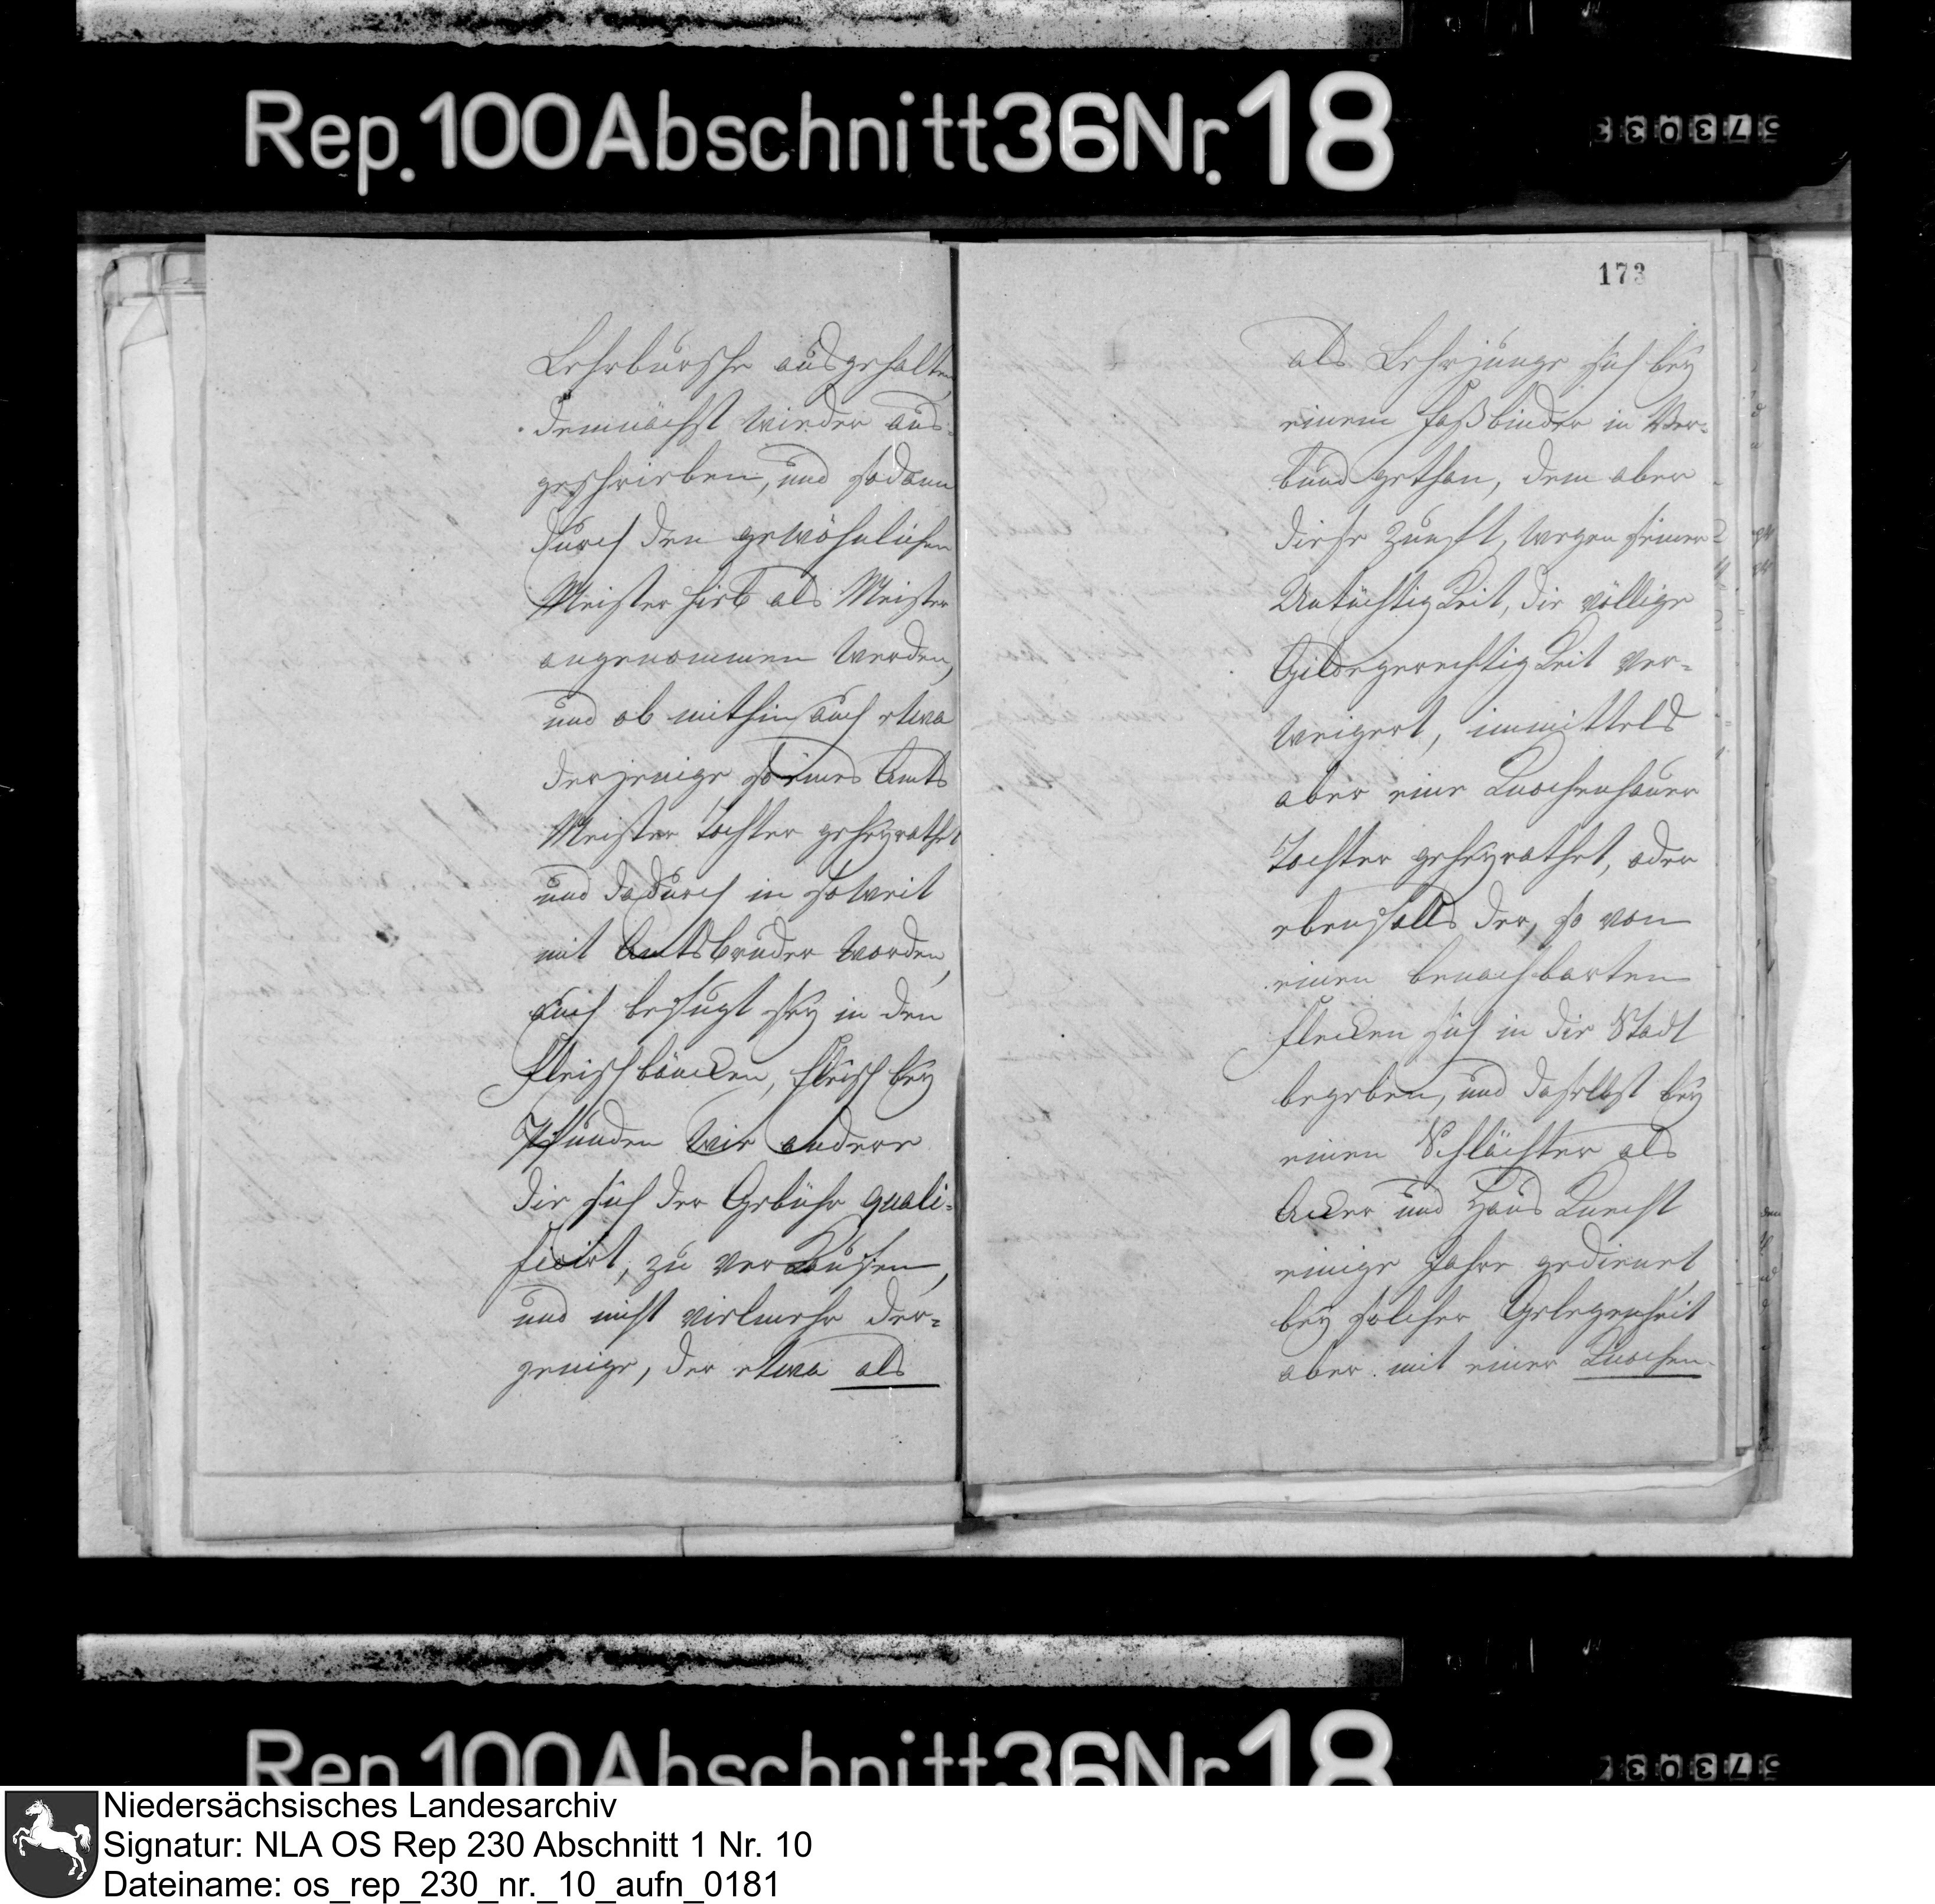 Rep. 100 Abschnitt 36 Nr. 18
173
Lehrbursche ausgehalten
demnächst wieder aus-
geschrieben, und sodann
durch den gewöhnlichen
Meister hieb als Meister
angenommen werden,
und ob mithin auch etwa
derjenige so eines Amts
Meister Tochter geheyrathet
und dadurch in soweit
mit Amtsbruder worden,
auch befugt sey in den
Fleischbäncken, Fleisch bey
Pfunden wie andere
die sich der Gebühr quali-
ficirt, zu verkaufen,
und nicht vielmehr der-
jenige, der etwa als
als Lehrjunge sich bey
einem Faßbinder in Ver-
bund gethan, dem aber
diese Zunft, wegen seiner
Untüchtigkeit, die völlige
Gildegerechtigkeit ver-
weigert, immittels
aber eine Knochenhauer
Tochter geheyrathet, oder
ebenfalls der, so von
einen benachbarten
Flecken sich in die Stadt
begeben, und daselbst bey
einen Schlächter als
Acker und Haus Knecht
einige Jahre gedienet
bey solcher Gelegenheit
aber mit einer Knochen-
Rep. 100 Abschnitt 36 Nr. 18
Niedersächsisches Landesarchiv
Signatur: NLA OS Rep 230 Abschnitt 1 Nr. 10
Dateiname: os_rep_230_nr._10_aufn_0181